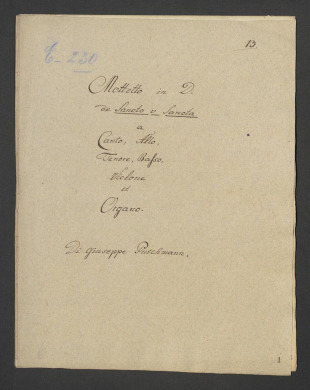 13
E-230
Mottetto in D.
de Sancto v Sancta
a
Canto, Alto,
Tenore, Basso,
Violone
et
Organo.
Di Giuseppe Puschmann.
1